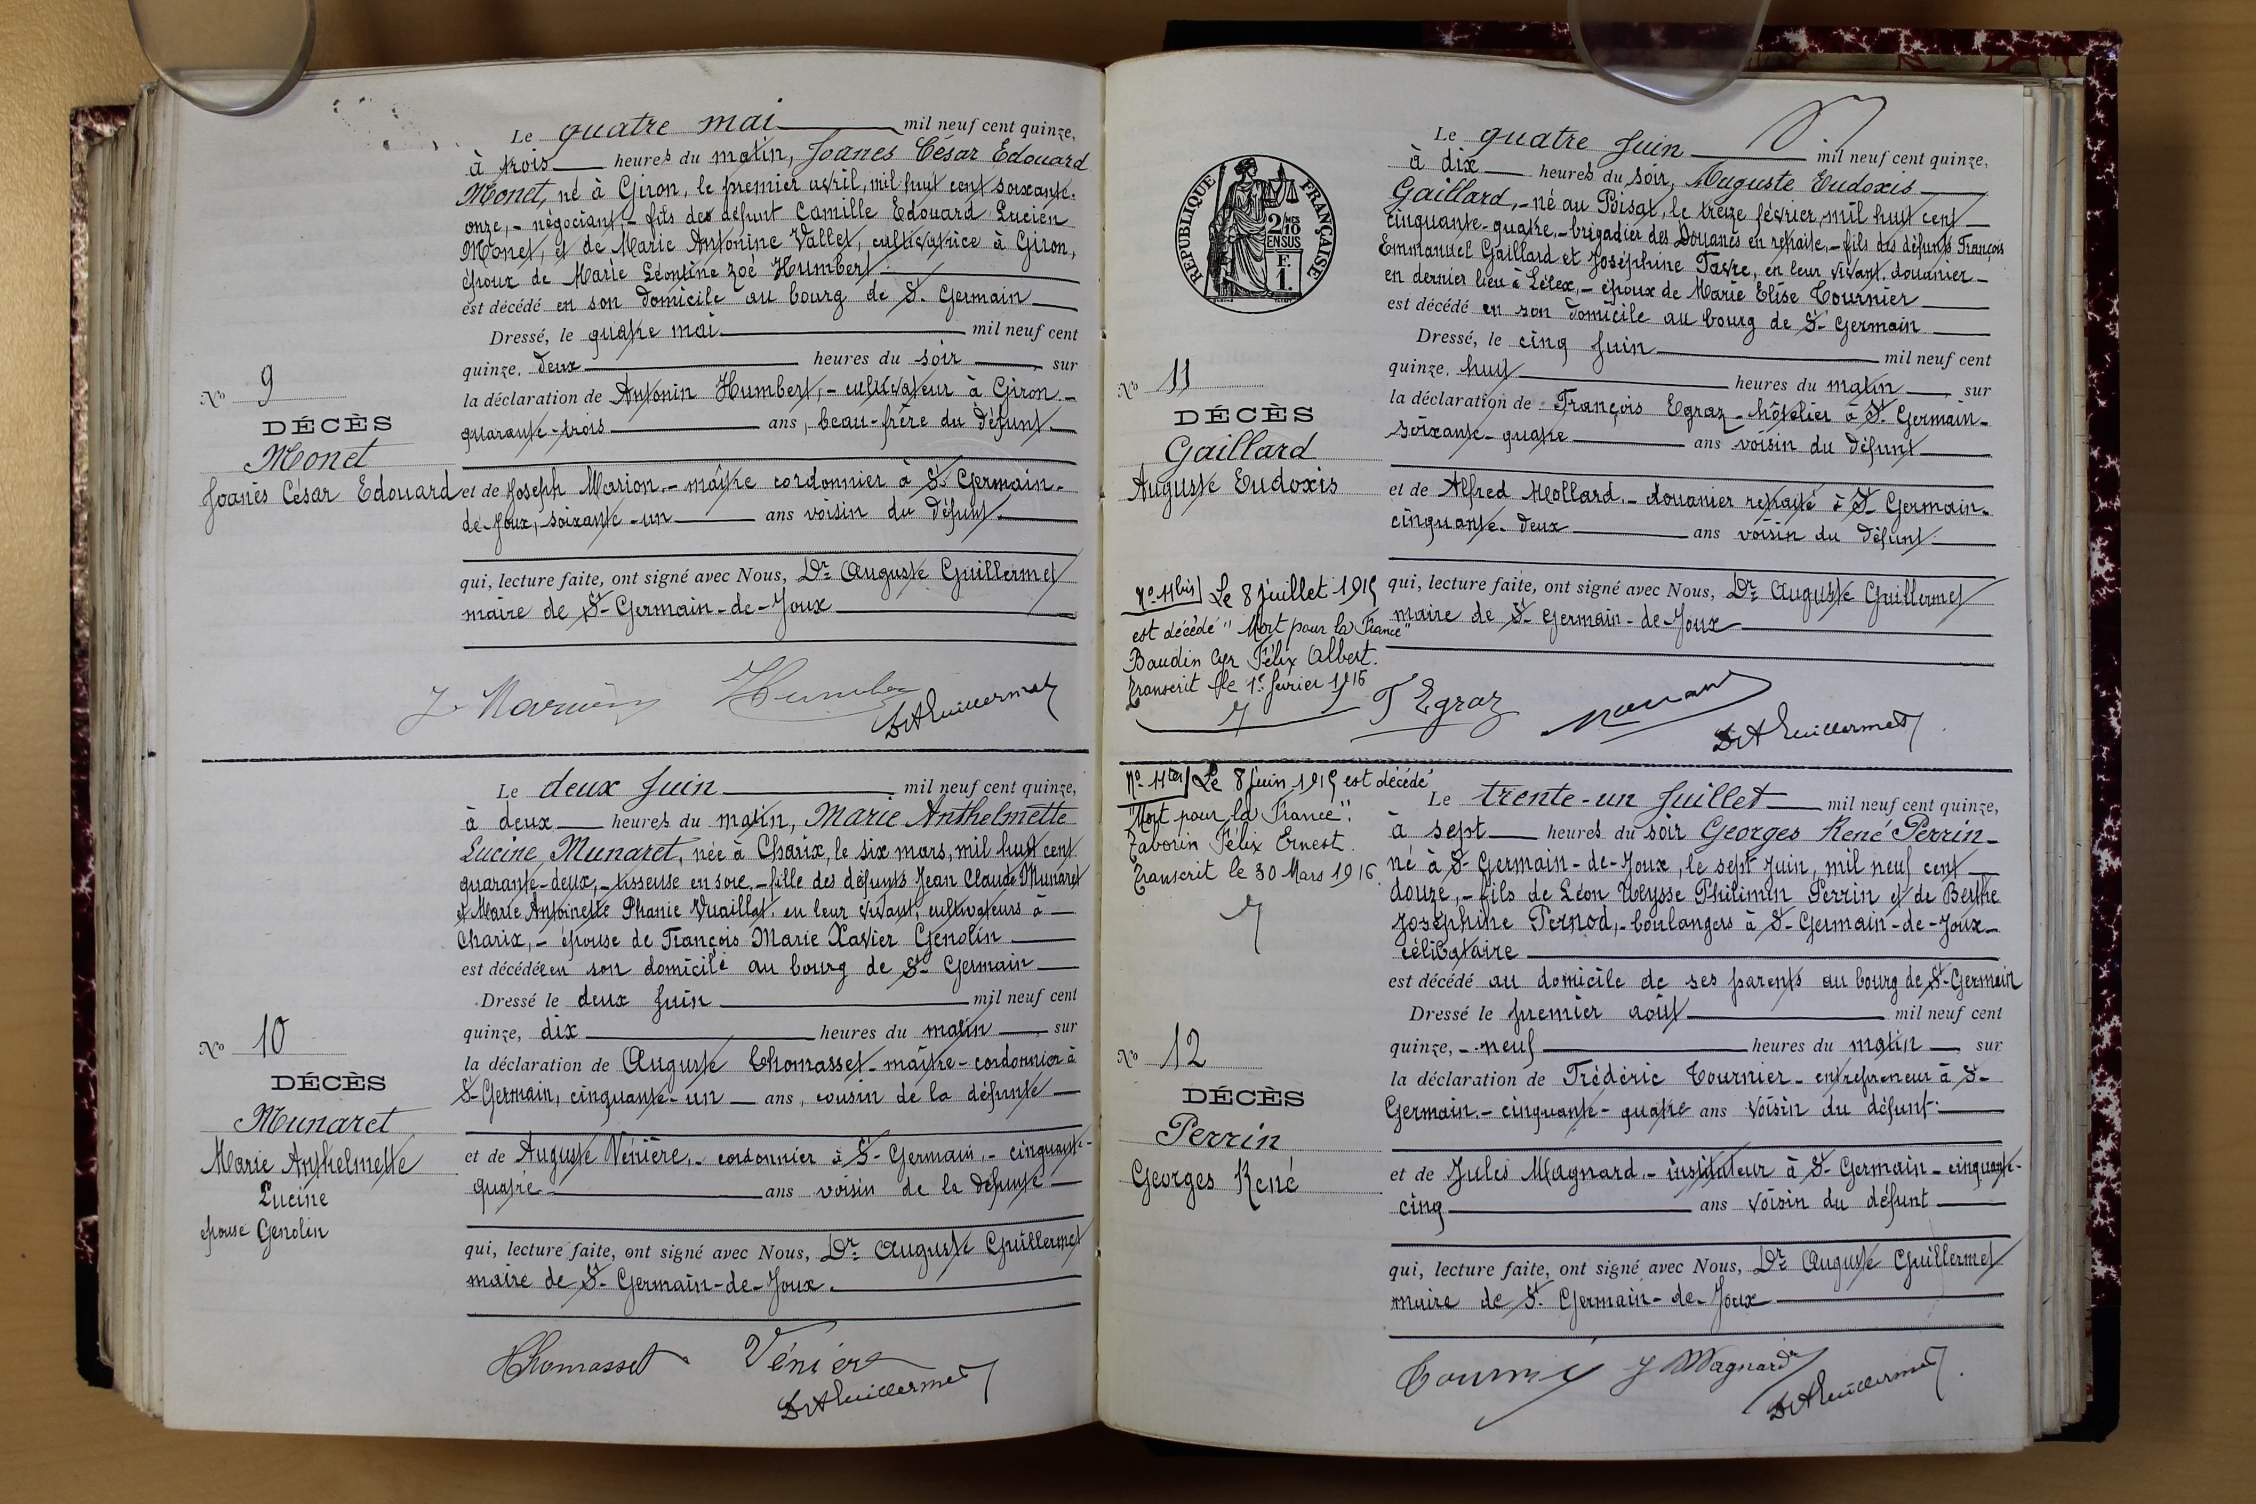 Le quatre mai mil neuf cent quinze,
à trois heures du matin, Joanés César Edouard
Monet, né à Giron, le premier avril, mil huit cent soixante-
onze, - négociant, - fils des défunt Camille Edouard Lucien
Monet, et de Marie Antonine Vallet, cultivatrice à Giron,
époux de Marie Léontine Zoé Humbert
est décédé en son domicile au bourg de St. Germain
Dressé, le quatre mai mil neuf cent
quinze, deux heures du soir, sur
la déclaration de Antonin Humbert, - cultivateur à Giron -
quarante-trois ans, beau-frère du défunt
et de Joseph Marion. - maître cordonnier à St. Germain-
de-Joux, - soixante-un ans voisin du défunt.
qui, lecture faite, ont signé avec Nous, Dr Auguste Guillermet
maire de St-Germain-de-Joux
No 9
DÉCÈS
Monet
Joanés César Edouard
J. Marion Humbert
Dr A Guillermet
Le deux Juin mil neuf cent quinze,
à deux heures du matin, Marie Anthelmette
Lucine Munaret, née à Charix, le six mars, mil huit cent
quarante-deux, - tisseuse en soie, - fille des défunts Jean Claude Munaret
et Marie Antoinette Phanie Vuaillat, en leur vivant, cultivateurs à
Charix, - épouse de François Marie Xavier Genolin
est décédée en son domicile au bourg de St-Germain
Dressé le deux Juin mil neuf cent
quinze, dix heures du matin, sur
la déclaration de Auguste Thomasset - maître-cordonnier à
St-Germain, cinquante-un ans, cousin de la défunte
et de Auguste Vénière, - cordonnier à St-Germain, - cinquante-
quatre ans voisin de la défunte
qui, lecture faite, ont signé avec Nous, Dr Auguste Guillermet
maire de St-Germain-de-Joux.
No 10
DÉCÈS
Munaret
Marie Anthelmette
Lucine
épouse Genolin
Thomasset Vénière
Dr A Guillermet
Le quatre Juin mil neuf cent quinze,
à dix heures du soir, Auguste Eudoxis
Gaillard, - né au Poisat, le treize février, mil huit cent
cinquante-quatre, - brigadier des Douanes en retraite, - fils des défunts François
Emmanuel Gaillard et Joséphine Favre, en leur vivant, douanier -
en dernier lieu à Lélex, - époux de Marie Elise Tournier
est décédé en son domicile au bourg de St-Germain
Dressé, le cinq Juin mil neuf cent
quinze, huit heures du matin, sur
la déclaration de François Egraz - hôtelier à St. Germain -
soixante-quatre ans voisin du défunt
et de Alfred Mollard, - douanier retraité à St Germain -
cinquante-deux ans voisin du défunt
qui, lecture faite, ont signé avec Nous, Dr Auguste Guillermet
maire de St-Germain-de-Joux
RÉPUBLIQUE FRANÇAISE
2/10
EN SUS
F.
1.
No 11
DÉCÈS
Gaillard
Auguste Eudoxis
No 11 bis Le 8 Juillet 1915
est décédé "Mort pour la France"
Baudin Cyr Félix Albert.
Transcrit le 1er février 1916
F Egraz
Dr A Guillermet
No 11 ter Le 8 Juin 1915 est décédé
"Mort pour la France".
Taborin Félix Ernest.
Transcrit le 30 Mars 1916.
Le trente-un Juillet mil neuf cent quinze,
à sept heures du soir Georges René Perrin -
né à St-Germain-de-Joux, le sept Juin, mil neuf cent
douze, - fils de Léon Ulysse Philimin Perrin et de Berthe
Joséphine Pernod, - boulangers à St-Germain-de-Joux -
célibataire
est décédé au domicile de ses parents au bourg de St-Germain
Dressé le premier août mil neuf cent
quinze, - neuf heures du matin, sur
la déclaration de Frédéric Tournier - entrepreneur à St-
Germain. - cinquante-quatre ans voisin du défunt
et de Jules Magnard. - instituteur à St-Germain - cinquante-
cinq ans voisin du défunt
qui, lecture faite, ont signé avec Nous, Dr Auguste Guillermet
maire de St. Germain-de-Joux
No 12
DÉCÈS
Perrin
Georges René
Tournier J Magnard
Dr A Guillermet